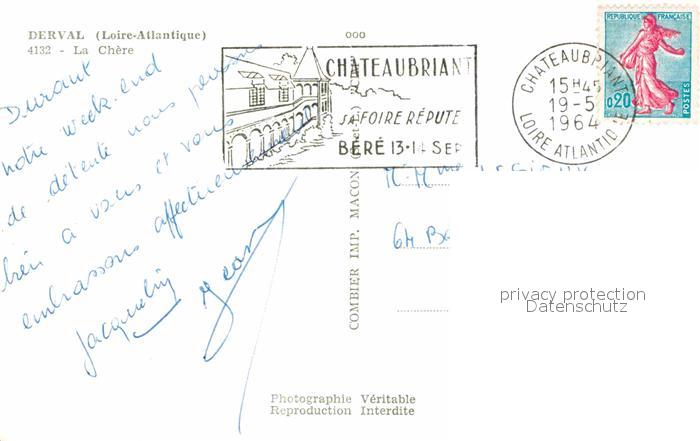 DERVAL (Loire-Atlantique)
4132 - La Chère
ooo
CHÂTEAUBRIANT
SA FOIRE RÉPUTÉE
BÉRÉ 13•14 SEP
CHATEAUBRIANT
15H45
19-5
1964
LOIRE ATLANTIQUE
REPUBLIQUE FRANÇAISE
0,20
POSTES
Durant
notre week-end
de détente nous pensons
bien à vous et vous
embrassons affectueusement
Jacqueline Jean
COMBIER IMP. MACON
M. Mme
64 B
privacy protection
Datenschutz
Photographie Véritable
Reproduction Interdite